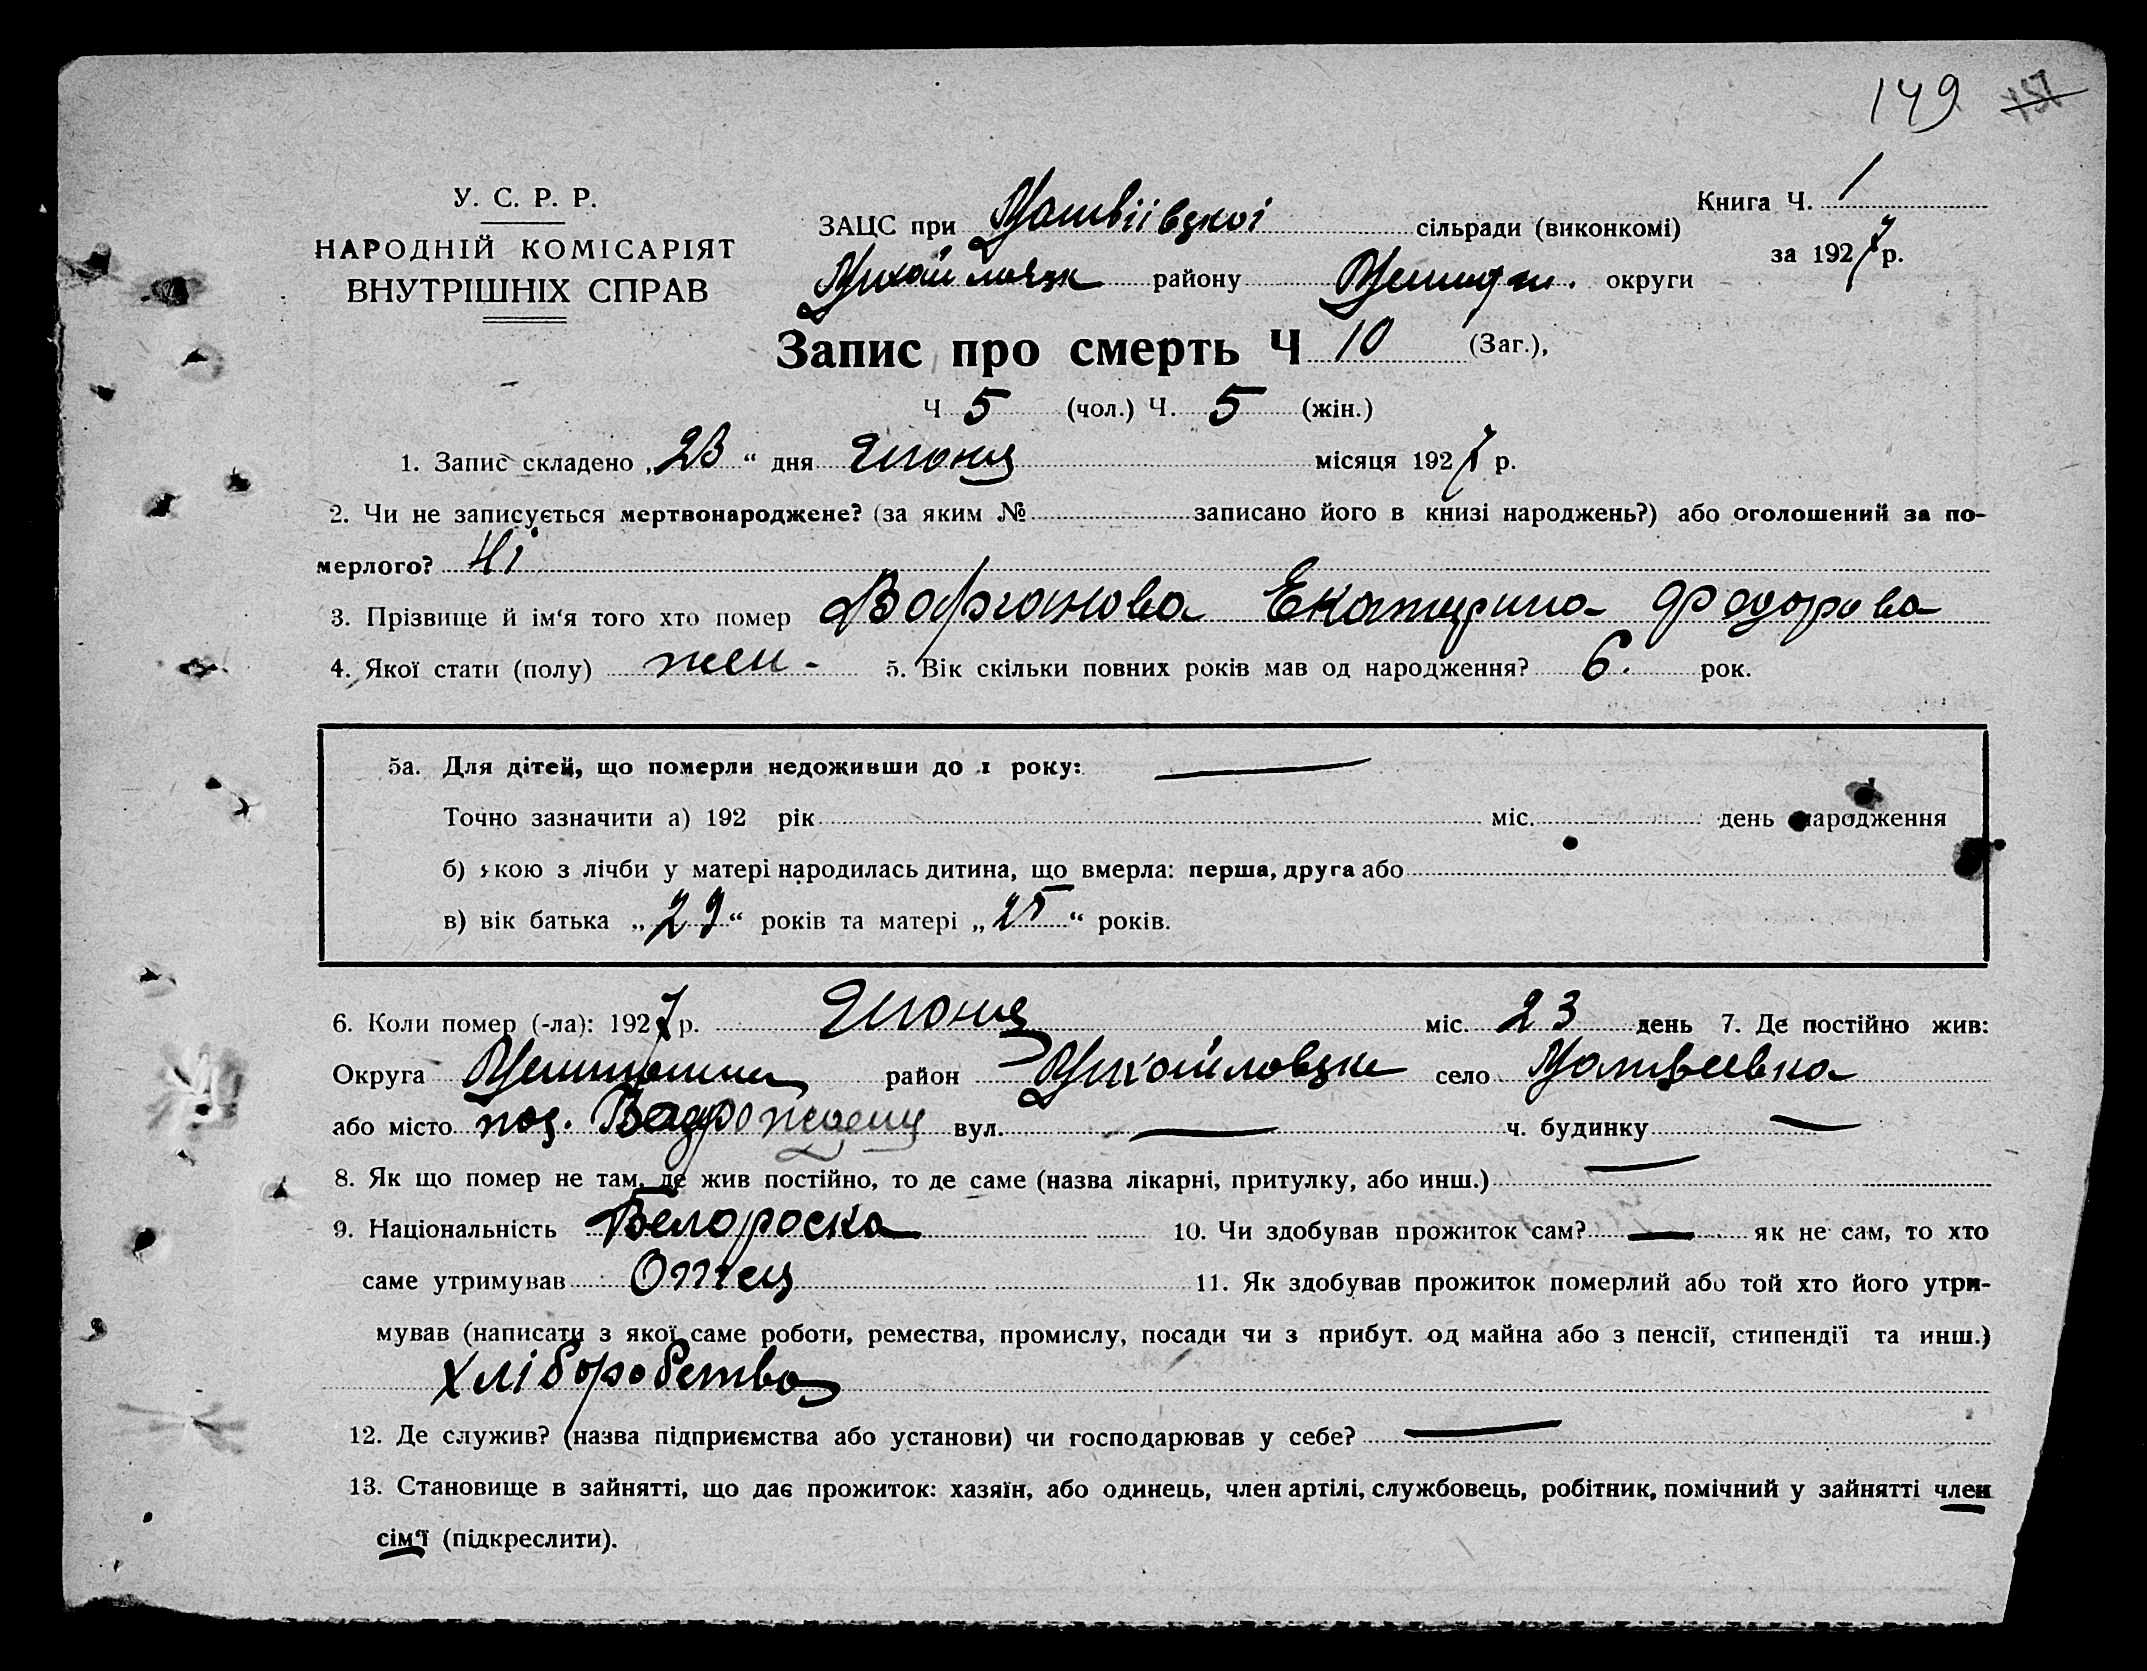 149 157
У. С. Р. Р.
НАРОДНІЙ КОМІСАРІЯТ
ВНУТРІШНІХ СПРАВ
Книга Ч. 1
за 1927 р.
ЗАЦС при Матвіівцкоі сільради (виконкомі)
району округи
Запис про смерть Ч 10 (Заг.),
Ч 5 (чол.) Ч. 5 (жін.)
1. Запис складено „23“ дня Июня місяця 1927 р.
2. Чи не записується мертвонароджене? (за яким № записано його в книзі народжень?) або оголошений за по-
мерлого? Ні
3. Прізвище й ім‘я того хто помер Варганова Екатерина Федорова
4. Якої стати (полу) жен - 5. Вік скільки повних років мав од народження? 6. рок.
5а. Для дітей, що померли недоживши до 1 року: —
Точно зазначити а) 192 рік міс. день народження
б) якою з лічби у матері народилась дитина, що вмерла: перша, друга або
в) вік батька „29“ років та матері „25“ років.
6. Коли помер (-ла): 1927 р. Июня міс. 23 день 7. Де постійно жив:
Округа район Михайловцки село Матвеевка
або місто пос. вул. — ч. будинку —
8. Як що помер не там, де жив постійно, то де саме (назва лікарні, притулку, або инш.) —
9. Національність Белороска 10. Чи здобував прожиток сам? — як не сам, то хто
саме утримував Отец 11. Як здобував прожиток померлий або той хто його утри-
мував (написати з якої саме роботи, ремества, промислу, посади чи з прибут. од майна або з пенсії, стипендії та инш.)
хліборобства
12. Де служив? (назва підприємства або установи) чи господарював у себе? —
13. Становище в зайнятті, що дає прожиток: хазяїн, або одинець, член артілі, службовець, робітник, помічний у зайнятті член
сім‘ї (підкреслити).